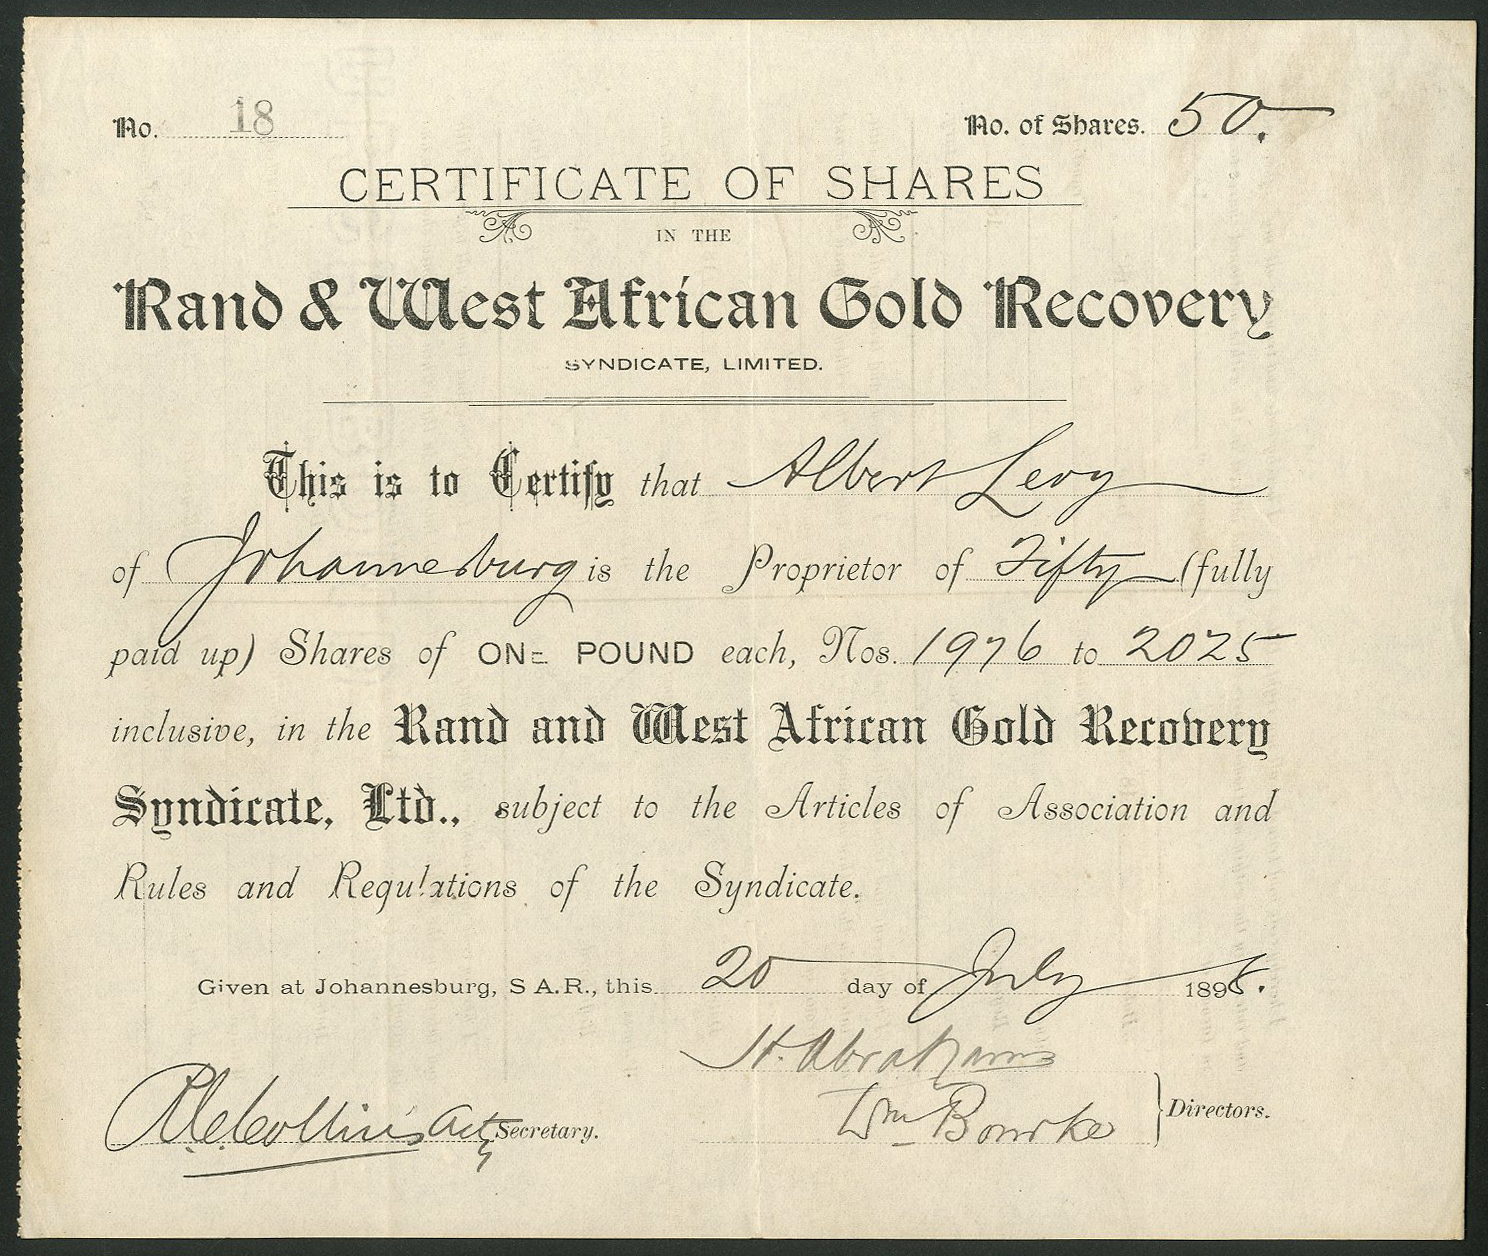 No. 18
No. of Shares. 50.
CERTIFICATE OF SHARES
IN THE
Rand & West African Gold Recovery
SYNDICATE, LIMITED.
This is to Certify that Albert Levy
of Johannesburg is the Proprietor of Fifty (fully
paid up) Shares of ONE POUND each, Nos. 1976 to 2025
inclusive, in the Rand and West African Gold Recovery
Syndicate, Ltd., subject to the Articles of Association and
Rules and Regulations of the Syndicate.
Given at Johannesburg, S A.R., this 20 day of July 1895.
H. Abrahams
Wm Bourke
Directors.
Collins Actg Secretary.